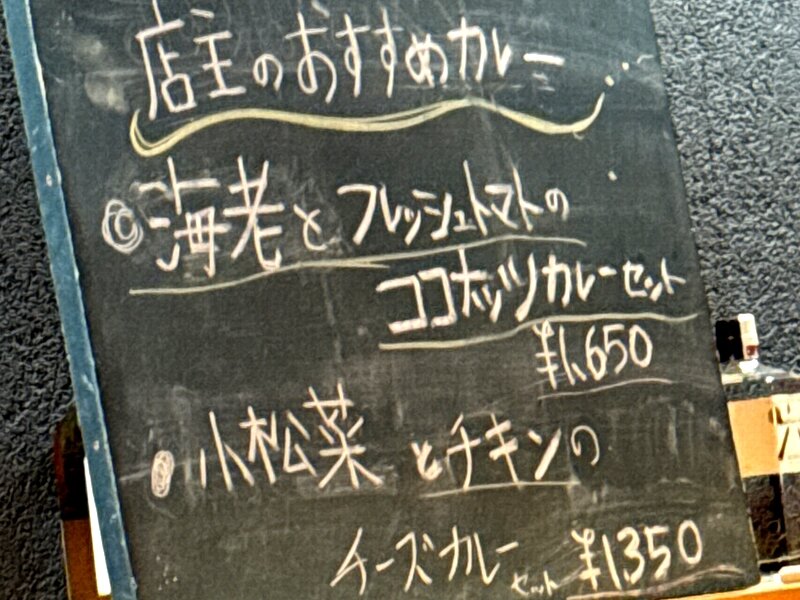 店主のおすすめカレー…
◎海老とフレッシュトマトの
ココナッツカレーセット
¥1,650
●小松菜とチキンの
チーズカレーセット ¥1350